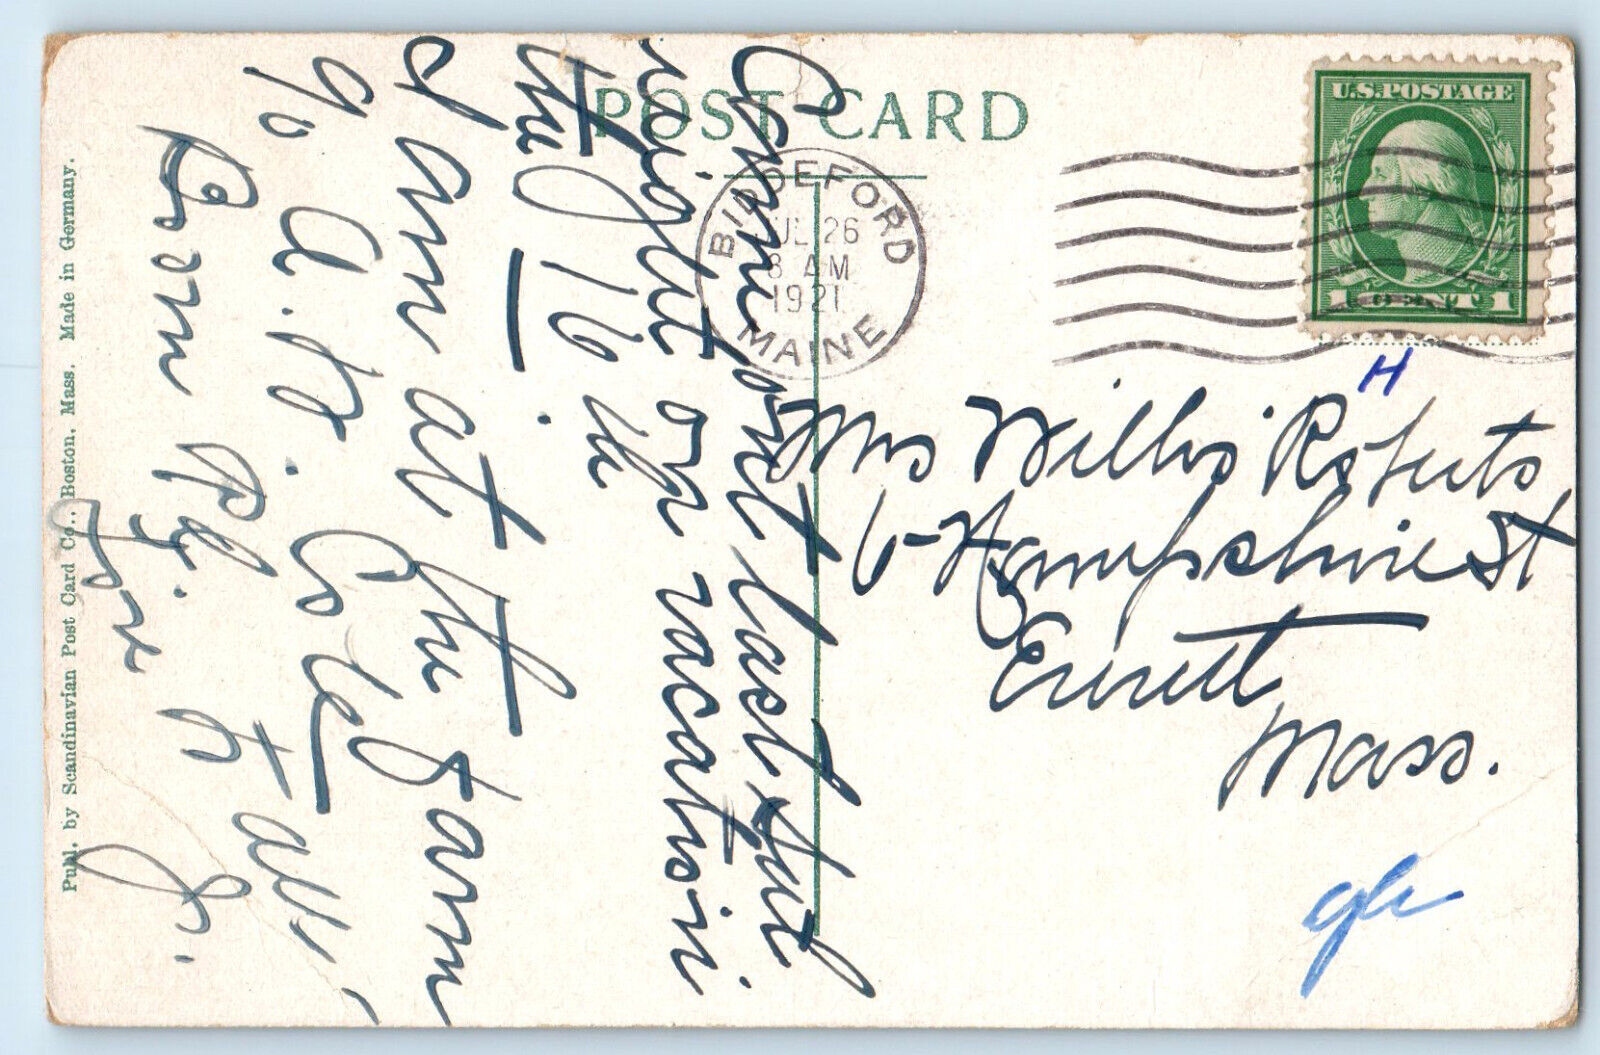 POST CARD
BIDDEFORD
JUL 26
8 AM
1921
MAINE
U.S. POSTAGE
1 CENT 1
H
Mrs Willis Roberts
6-Hampshire St
Everett
Mass.
Came out last Sat
night on vacation
the 16 th
I am at the farm
% A. W. Coles
Love to all
J.
Publ. by Scandinavian Post Card Co., Boston, Mass. Made in Germany.